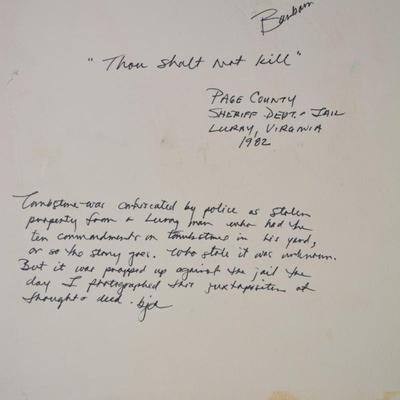 Barbara
"Thou shalt not kill"
Page County
Sheriff Dept. & Jail
Luray, Virginia
1982
Tombstone was confiscated by police as stolen
property from a Luray man who had the
ten commandments on tombstones in his yard,
or so the story goes. Who stole it was unknown.
But it was propped up against the jail the
day I photographed this juxtaposition of
thought & deed.